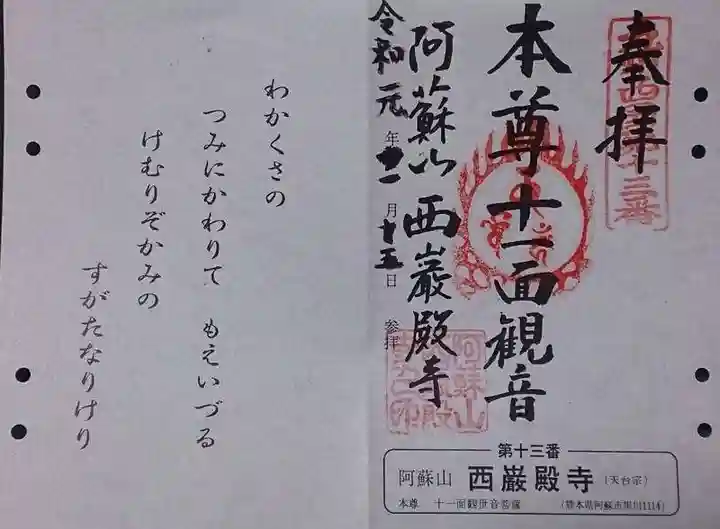 奉拝
本尊十一面観音
阿蘇山西巌殿寺
令和元年十一月十五日 参拝
第十三番
阿蘇山 西巌殿寺 (天台宗)
本尊 十一面観世音菩薩 (熊本県阿蘇市黒川1114)
わかくさの
つみにかわりて もえいづる
けむりぞかみの
すがたなりけり